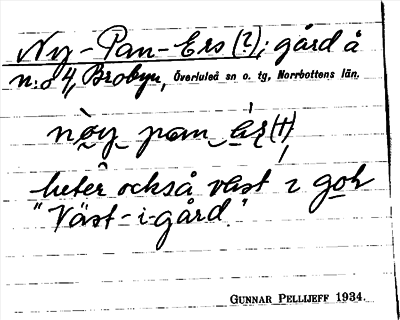 Ny-Pan-Ers (?); gård å
n:o 4, Brobyn, Överluleå sn o. tg, Norrbottens län.
nòy pan ę́r (†)
heter också väst i goh
"Väst-i-gård."
GUNNAR PELLIJEFF 1934.